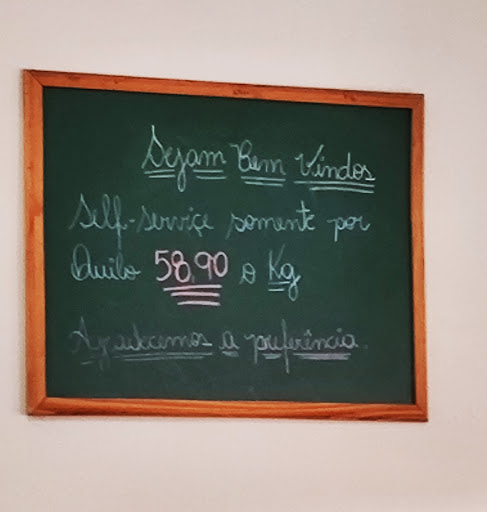 Sejam Bem Vindos
Self-serviçe somente por
Quilo 58,90 o Kg
Agradecemos a preferência.